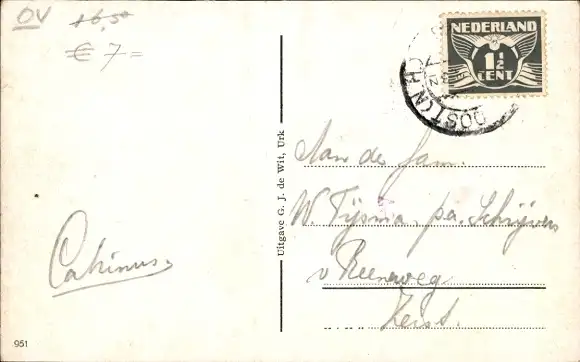 ÖV 16,50
€ 7=
NEDERLAND
1½
CENT
OOST (N
CH
Uitgave G. J. de Wit, Urk
Aan de fam.
W. Tijsma, pa. Schrijvers
v Reenweg
Zeist.
Catrinus,
951